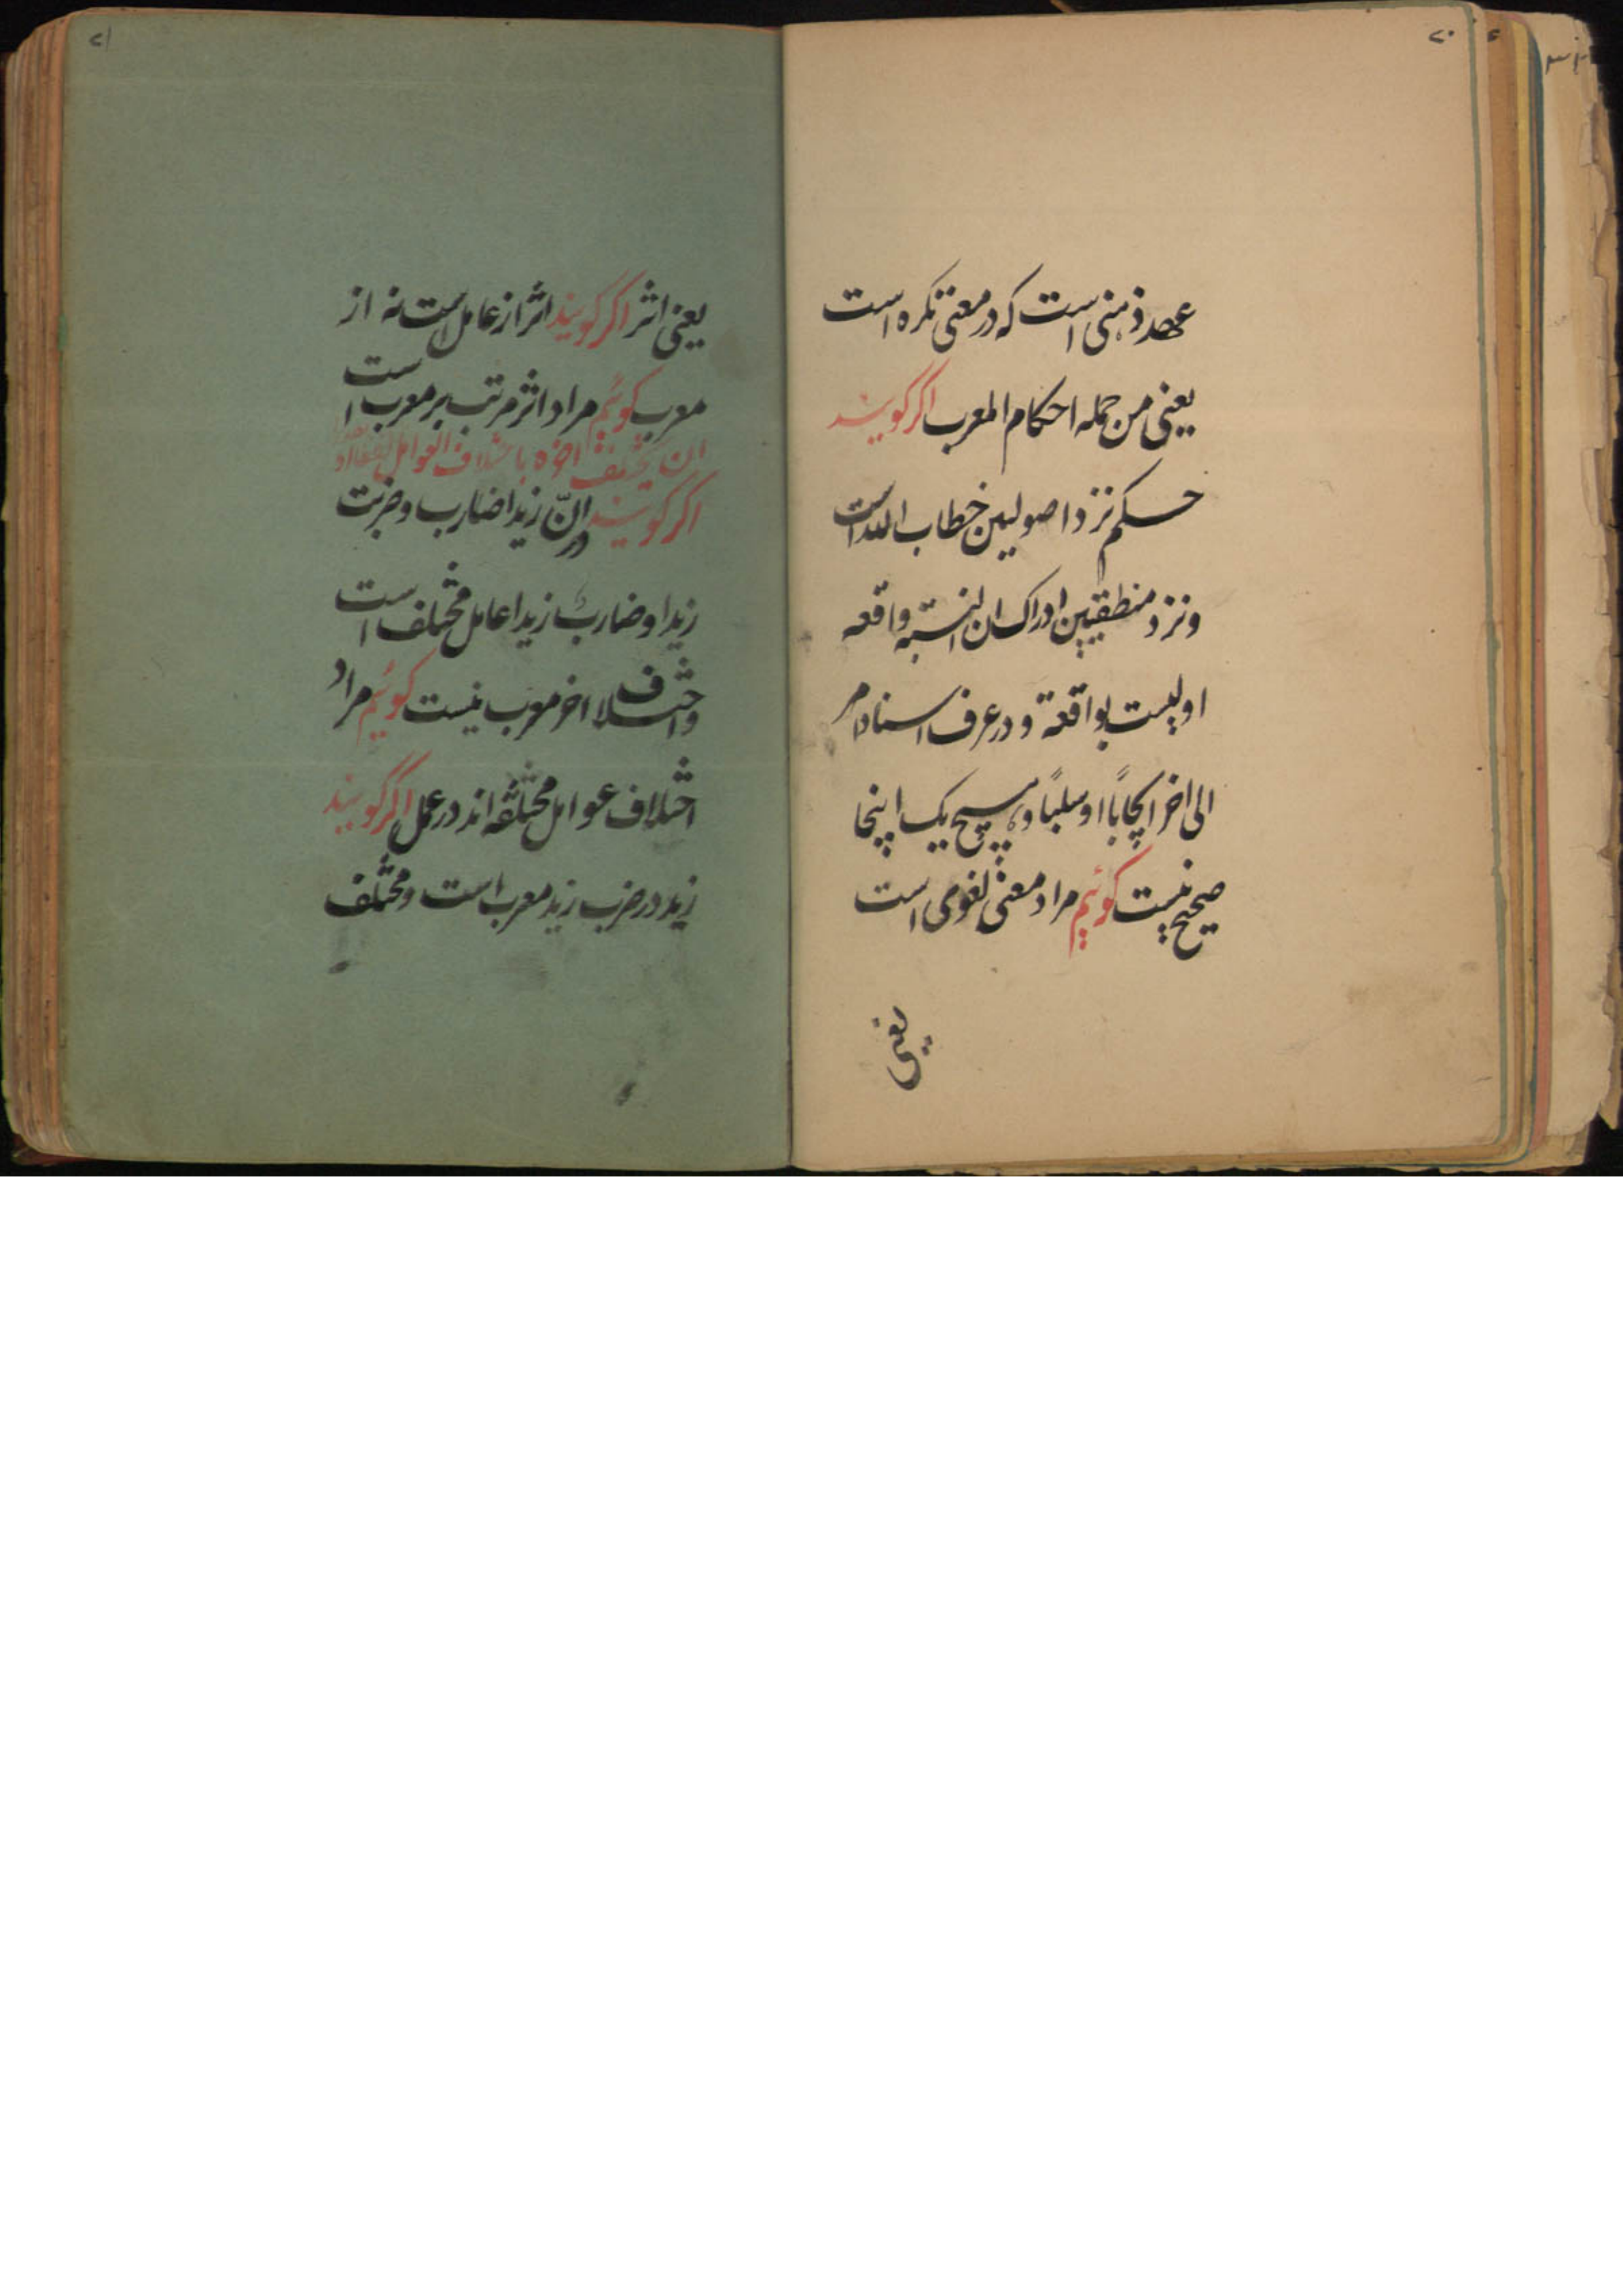 ۲۰
عهد ذهنی است که در معنی نکره است
یعنی من جمله احکام المعرب اکر کویند
حکم نزد اصولیین خطاب الله است
و نزد منطقیین ادراک ان النسبة واقعه
او لیست بواقعة و در عرف اسناد امر
الی اخر ایجابًا او سلبًا و هیچ یک اینجا
صحیح نیست کوئیم مراد معنی لغوی است
یعنی
۲۱
یعنی اثر اکر کویند اثر از عامل است نه از
معرب کوئیم مراد اثر مرتب بر معرب است
ان یختلف اخره باختلاف العوامل لفظا او
اکر کویند در انّ زیدا ضارب و ضربت
زیدا و ضارب زیدا عامل مختلف است
و اختلاف اخر معرب نیست کوئیم مراد
اختلاف عوامل مختلفه اند در عمل اکر کویند
زید در ضرب زید معرب است و مختلف